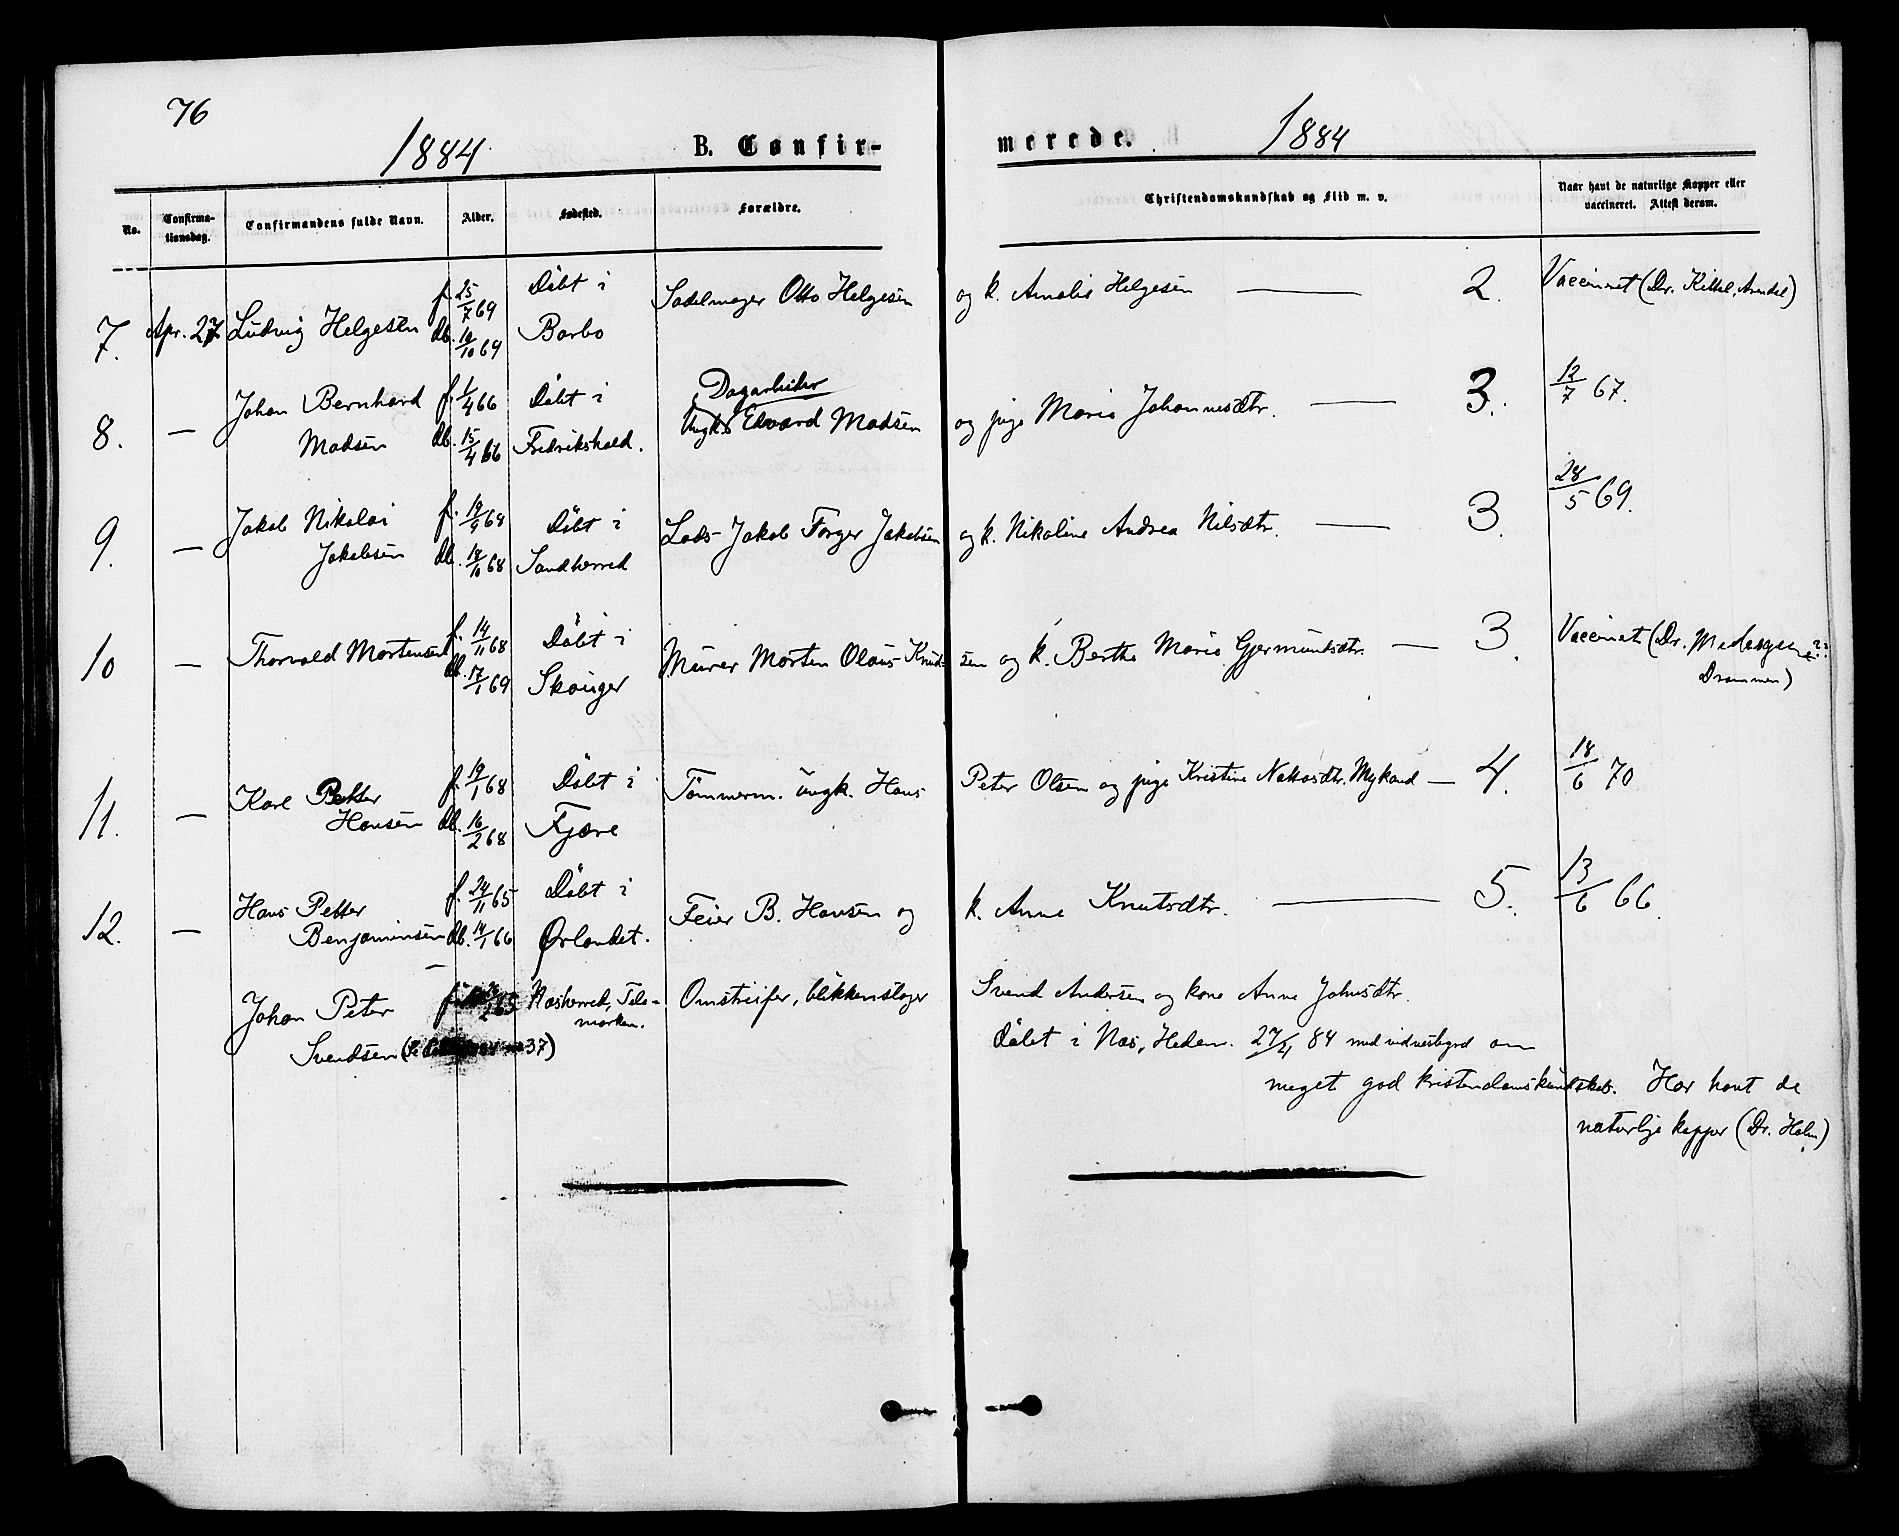 76
1884. B. Confir-
merede. 1884
No. Confirma-tionsdag. Confirmandens fulde Navn. Alder. Fødested. Forældre.
Christendomskundskab og Flid m. v. Naar havt de naturlige Kopper eller vaccineret. Attest derom.
7. Apr. 27 Ludvig Helgesen f. 25/7 69 Døbt i Sadelmager Otto Helgesen og k. Amalie Helgesen — 2. Vaccinert (Dr. Kittel, Arendal)
db. 10/10 69 Barbo
8. — Johan Bernhard f. 1/4 66 Døbt i Dagarbeider
Madsen db. 15/4 66 Fredrikshald. Ungk. Edvard Madsen og pige Maria Johannesdtr. — 3. 12/7 67.
9. — Jakob Nikolai f. 19/9 68 Døbt i Lods Jakob Torger Jakobsen og k. Nikoline Andrea Nilsdtr. — 3. 28/5 69.
Jakobsen db. 18/10 68 Sandherred
10 — Thorvald Mortensen f. 14/11 68 Døbt i Murer Morten Olaus Knud- sen og k. Berthe Marie Gjermundsdtr. — 3. Vaccinert (Dr.
db. 17/1 69 Skouger Drammen)
11. — Karl Petter f. 19/1 68 Døbt i Tømmerm. ungk. Hans Peter Olsen og pige Kristine Mykand — 4. 18/6 70
Hansen db. 16/2 68 Fjære
12. — Hans Petter f. 24/11 65 Døbt i Feier B. Hansen og k. Anne Knutsdtr. — 5. 13/6 66.
Benjaminsen db. 14/1 66 Ørlandet.
— Johan Peter f. 65 Næsherred, Tele- Omstreifer, blikkenslager Svend Andersen og kone Anne Johnsdtr.
marken.
Svendsen ( 37) Døbt i Næs, Hedem. 27/4 84 med vidnesbyrd om
meget god kristendomskundskab. Har havt de
naturlige kopper (Dr. Holm)